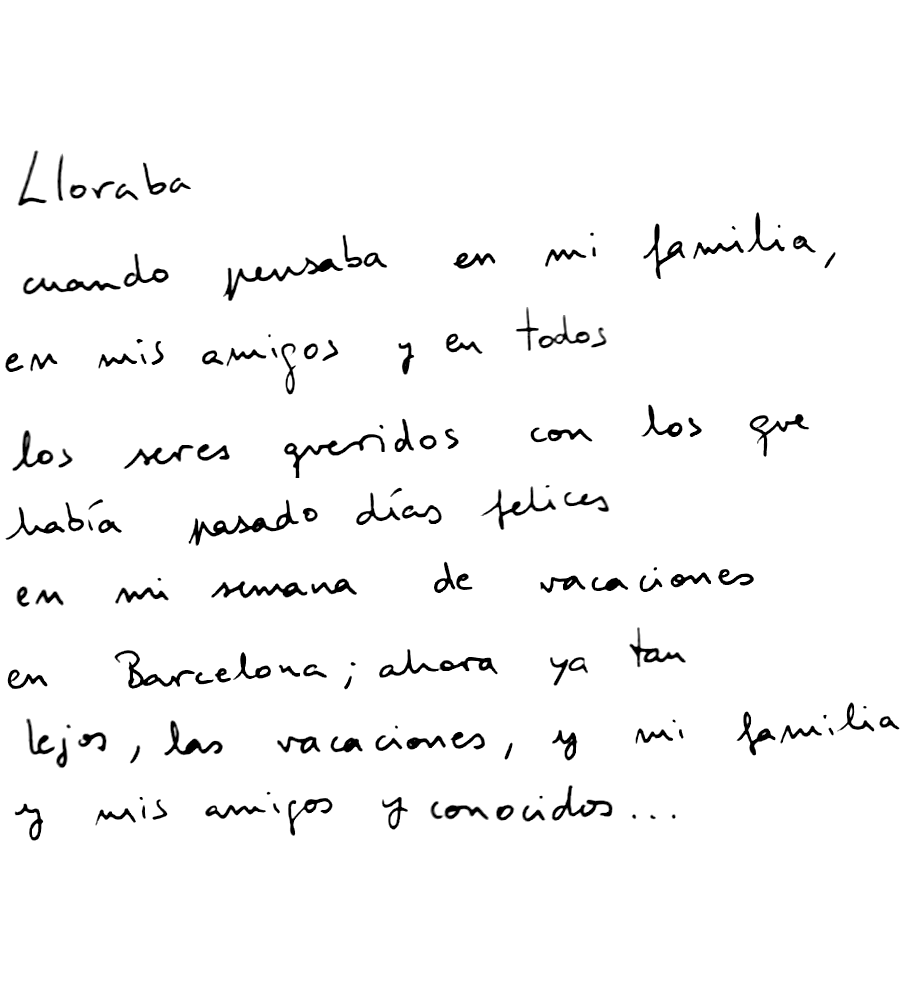 Lloraba
cuando pensaba en mi familia,
en mis amigos y en todos
los seres queridos con los que
había pasado días felices
en mi semana de vacaciones
en Barcelona; ahora ya tan
lejos, las vacaciones, y mi familia
y mis amigos y conocidos...